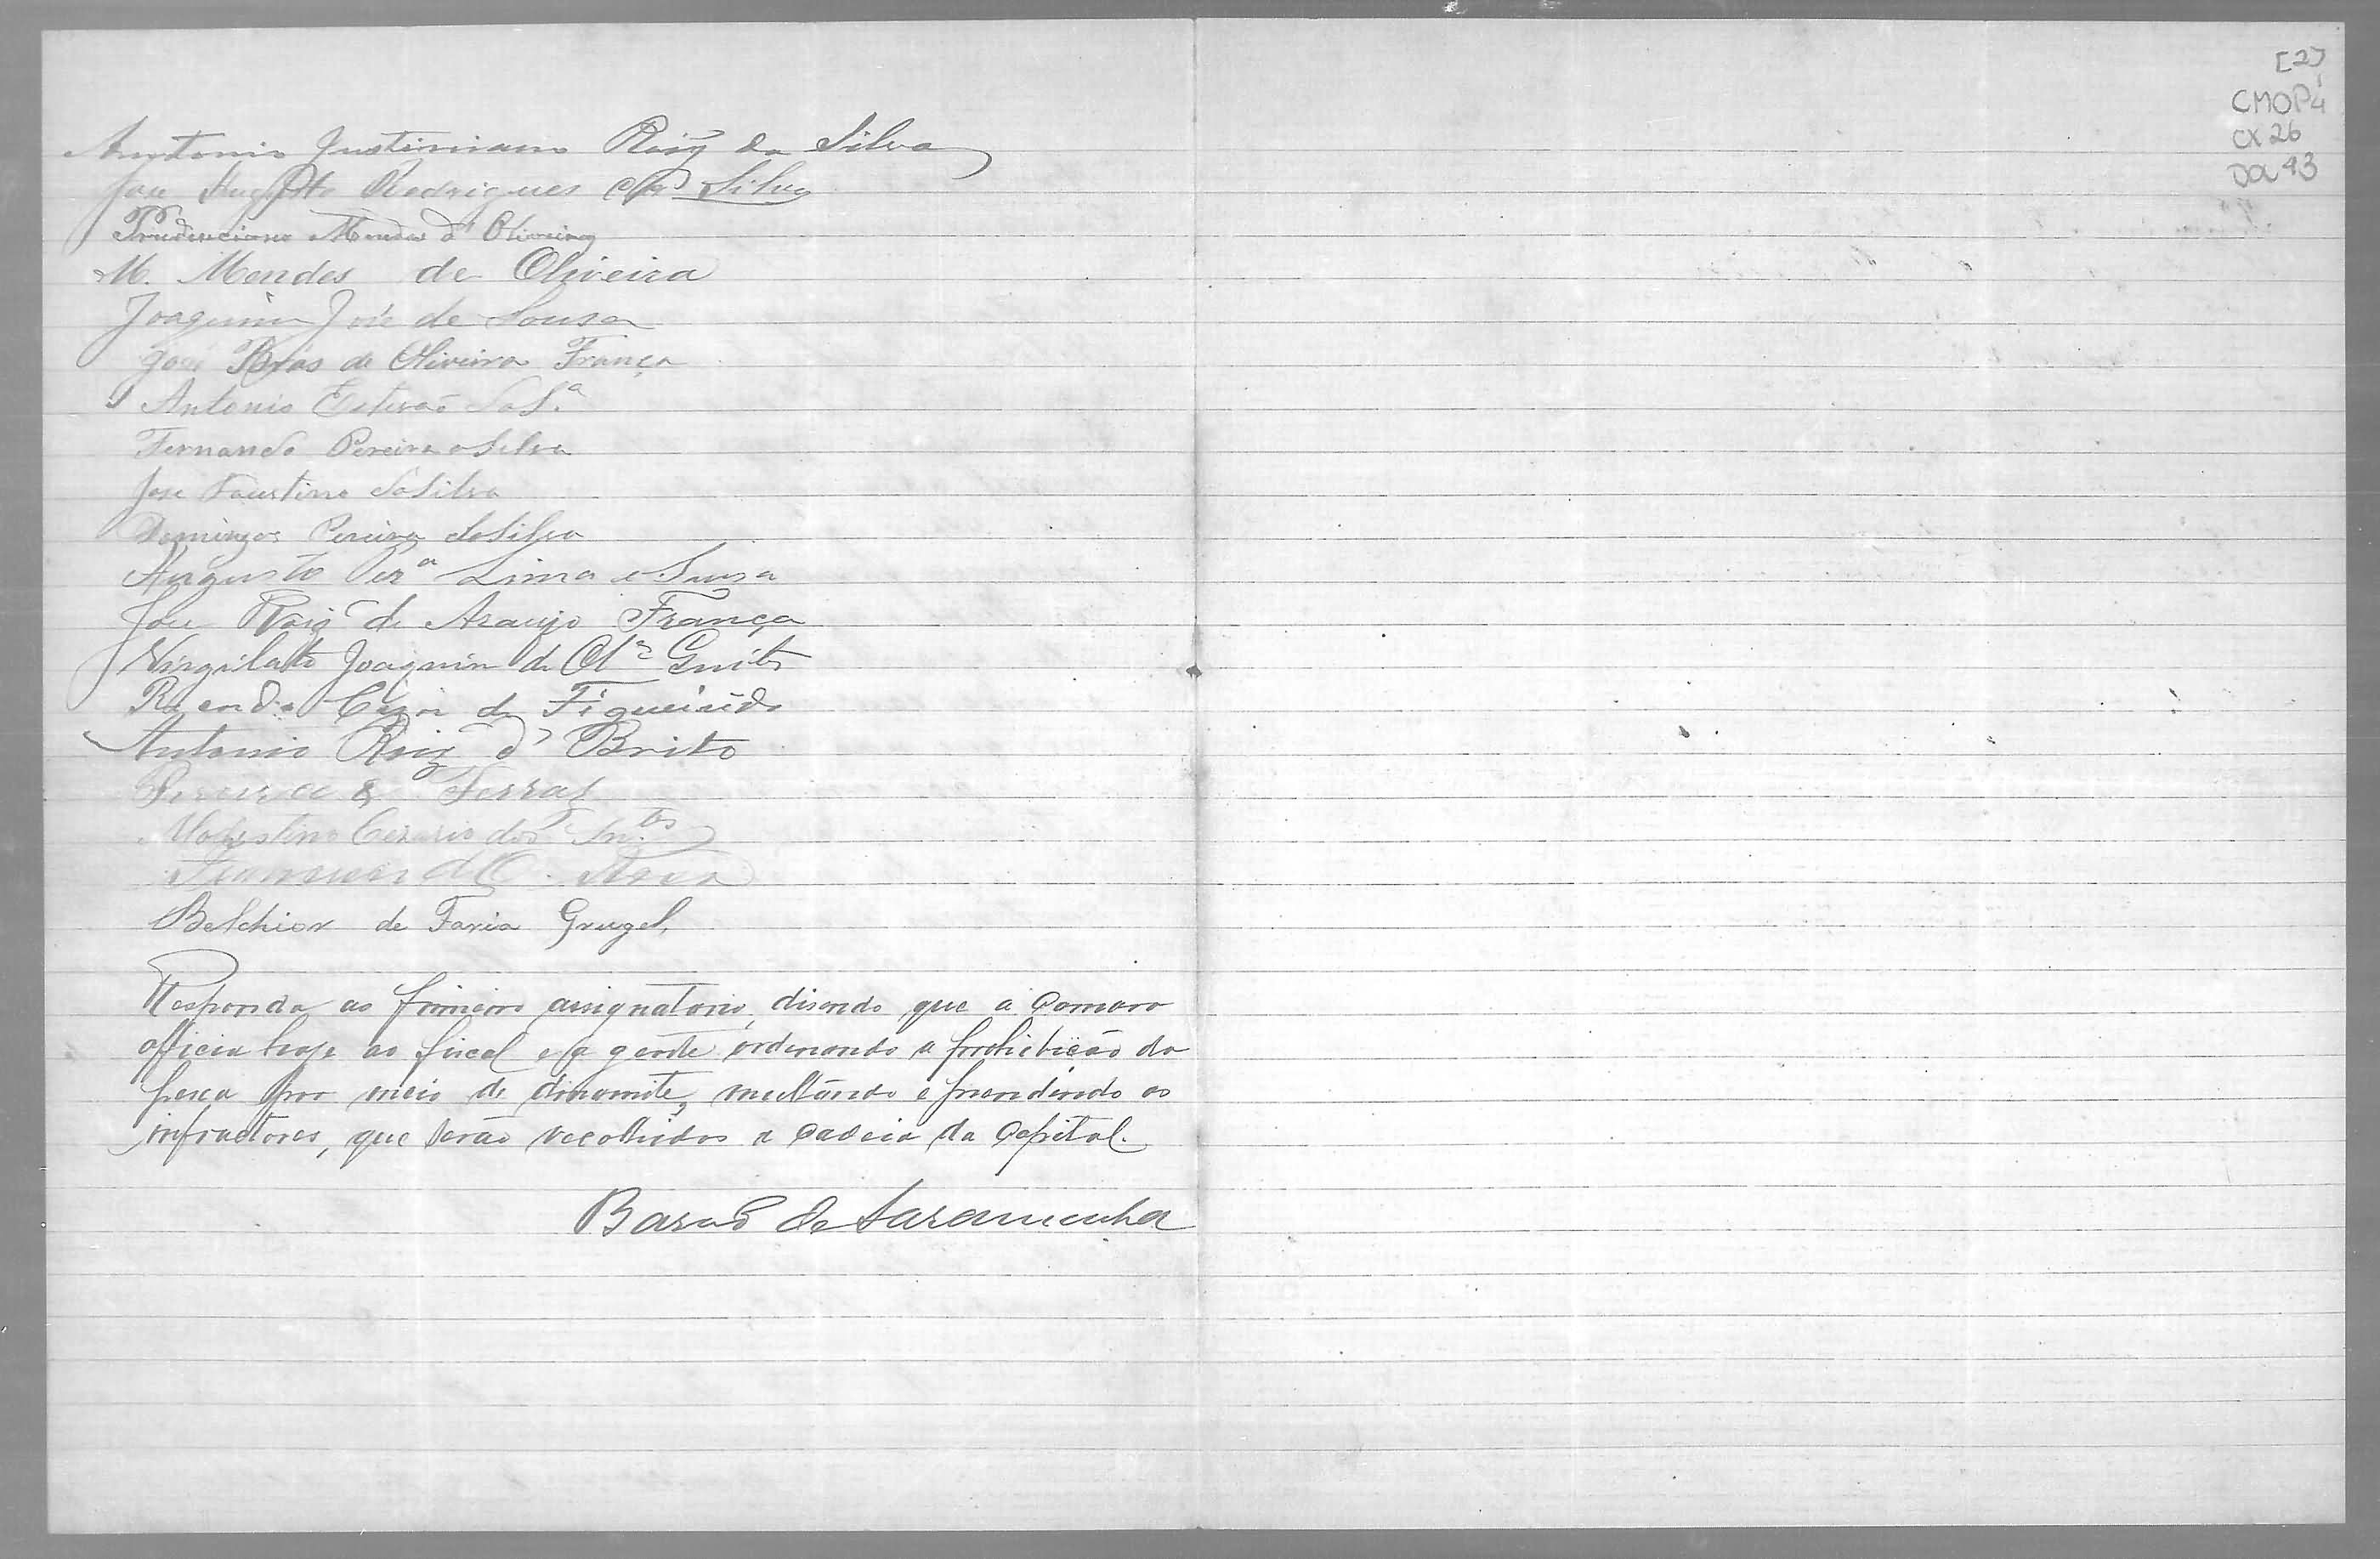 Antonio Justiniano Roiz da Silva
José Augusto Rodrigues da Silva
Prudenciano Mendes d'Oliveira
M. Mendes de Oliveira
Joaquim José de Sousa
José Bras de Oliveira França
Antonio Estevão da S.ª
Fernando Pereira e Silva
Jose Faustino da Silva
Domingos Pereira da Silva
Augusto Per.ª Lima e Sousa
José Roiz de Araujo França
Virgilato Joaquim de Ol.ª
de Figueirêdo
Antonio Roiz d' Brito
& Ferraz
Cezario dos
Belchior de Faria Grugel,
Responda ao primeiro assignatorio, disendo que a Camara
officia hoje ao fiscal e agente ordenando a prohibição da
pesca por meio de dinamite, multando e prendendo os
infractores, que serão recolhidos a cadeia da Capital.
Barão de Saramenha
[2]
CMOP4
CX 26
DOC 43